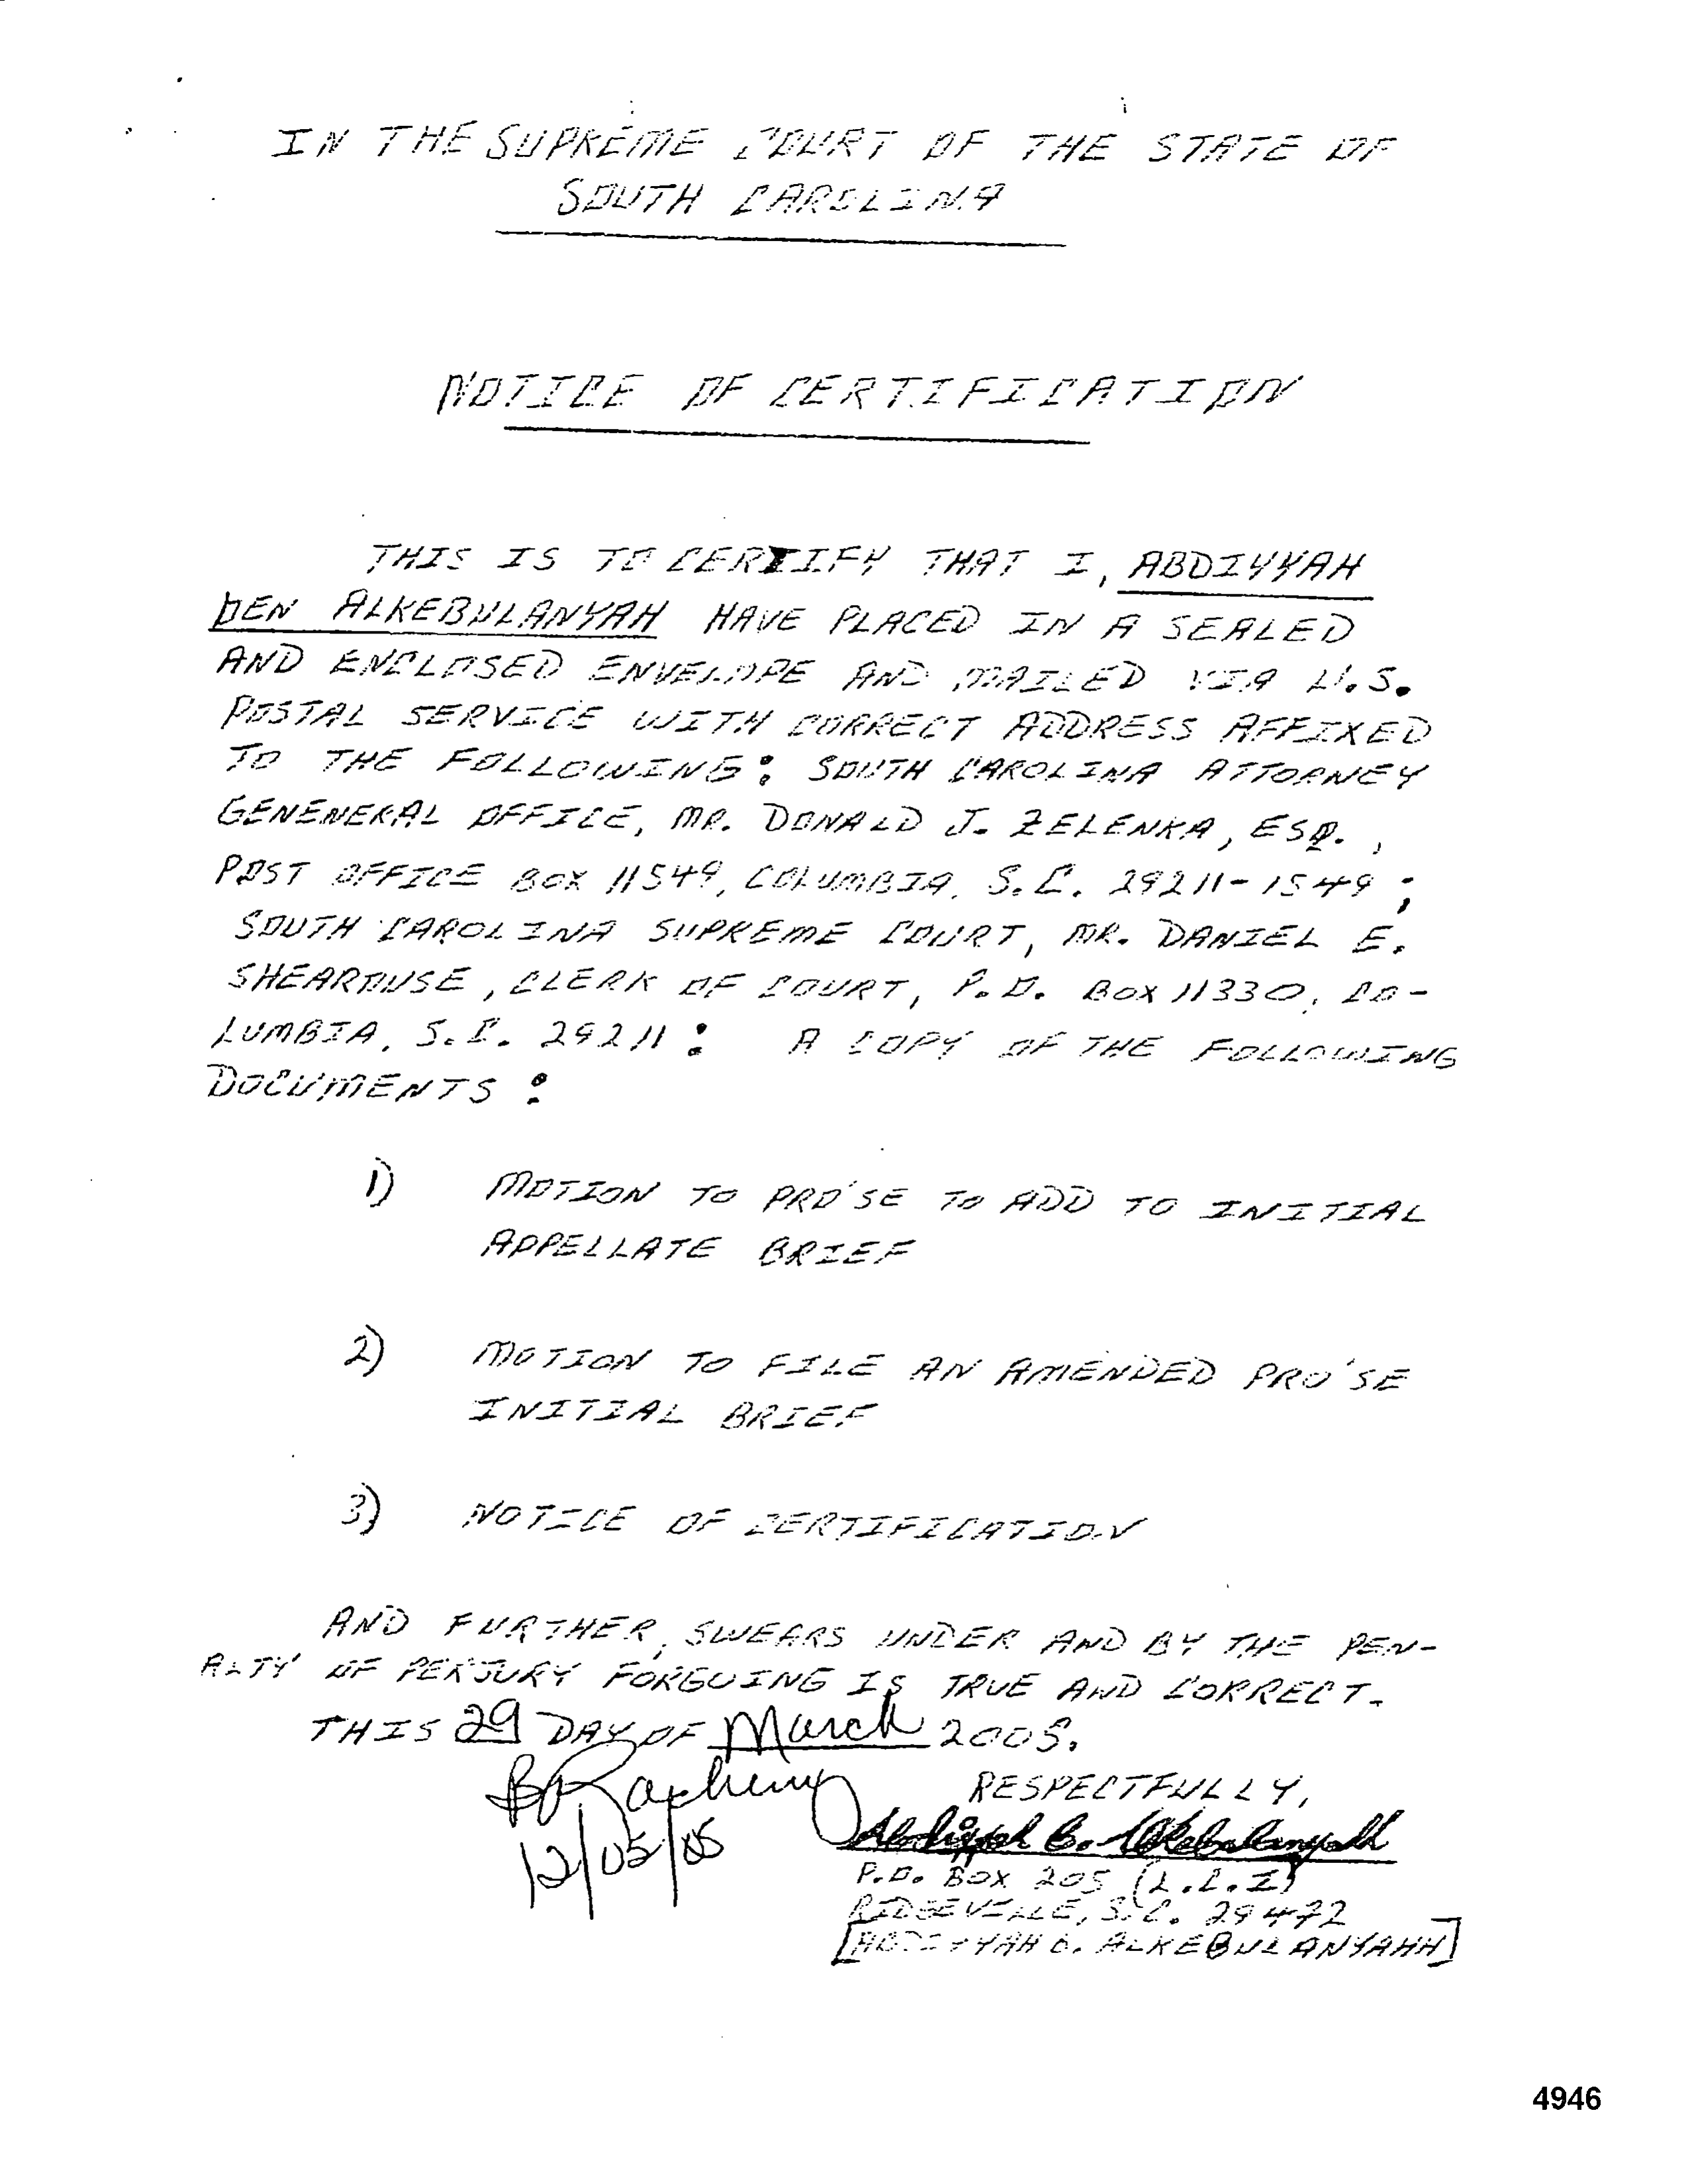 IN THE SUPREME COURT OF THE STATE OF
SOUTH CAROLINA
NOTICE OF CERTIFICATION
THIS IS TO CERTIFY THAT I, ABDIYYAH
BEN ALKEBULANYAH HAVE PLACED IN A SEALED
AND ENCLOSED ENVELOPE AND MAILED VIA U.S.
POSTAL SERVICE WITH CORRECT ADDRESS AFFIXED
TO THE FOLLOWING: SOUTH CAROLINA ATTORNEY
GENENERAL OFFICE, MR. DONALD J. ZELENKA, ESQ.,
POST OFFICE BOX 11549, COLUMBIA, S.C. 29211-1549;
SOUTH CAROLINA SUPREME COURT, MR. DANIEL E.
SHEAROUSE, CLERK OF COURT, P.O. BOX 11330, CO-
LUMBIA, S.C. 29211: A COPY OF THE FOLLOWING
DOCUMENTS:
1) MOTION TO PRO'SE TO ADD TO INITIAL
APPELLATE BRIEF
2) MOTION TO FILE AN AMENDED PRO'SE
INITIAL BRIEF
3) NOTICE OF CERTIFICATION
AND FURTHER, SWEARS UNDER AND BY THE PEN-
ALTY OF PERJURY FORGOING IS TRUE AND CORRECT.
THIS 29 DAY OF March 2005.
RESPECTFULLY,
12/05/05
Abdiyyah B. Alkebulanyah
P.O. BOX 205 (L.C.I)
RIDGEVILLE, S.C. 29472
[ABDIYYAH B. ALKEBULANYAHH]
4946